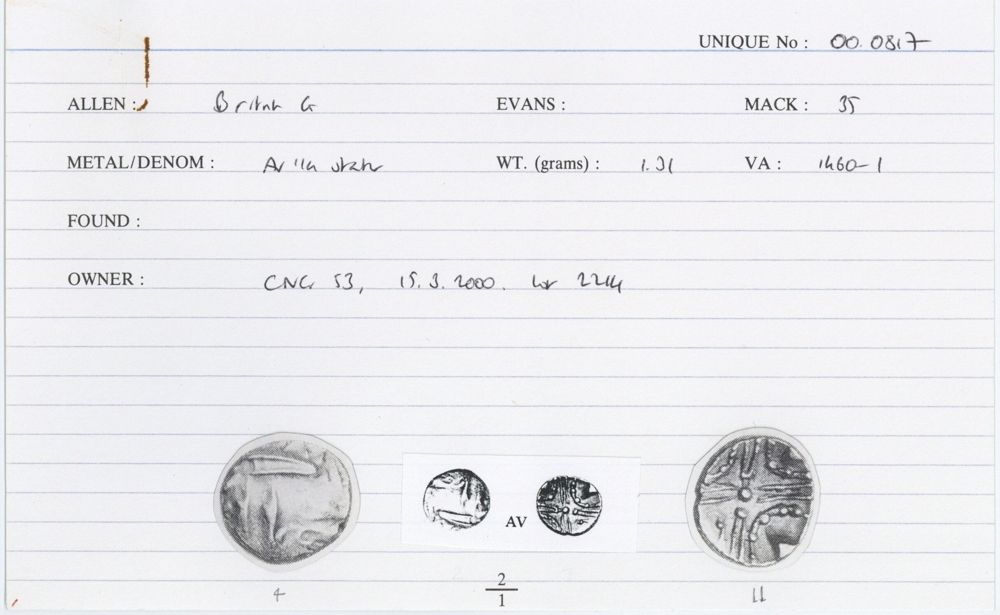 UNIQUE No : 00.0817
ALLEN : British G EVANS : MACK : 35
METAL/DENOM : AV 1/4 stater WT. (grams) : 1.31 VA : 1460-1
FOUND :
OWNER : CNG 53, 15.3.2000. lot 2214
AV
4 2/1 11